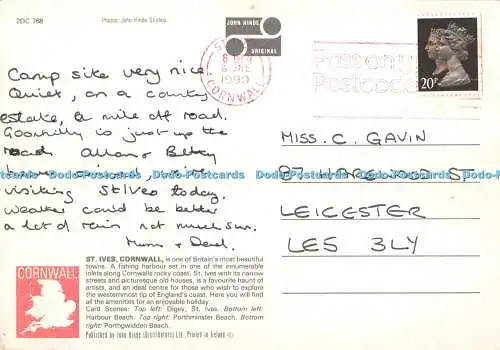 2DC 768
Photo: John Hinde Studios.
JOHN HINDE
ORIGINAL
1990
CORNWALL
Post on
Postcode
20P
Camp site very nice.
Quiet, on a country
estate, a mile off road.
Goonhilly is just up the
road. Allan & Betty
visiting St Ives today.
weather could be better
a lot of rain not much sun.
Mum & Dad.
MISS. C. GAVIN
ST.
LEICESTER
LE5 3LY
Dodo-Postcards Dodo-Postcards Dodo-Postcards Dodo-Postcards
CORNWALL
ST. IVES, CORNWALL, is one of Britain's most beautiful
towns. A fishing harbour set in one of the innumerable
inlets along Cornwalls rocky coast, St. Ives with its narrow
streets and picturesque old houses, is a favourite haunt of
artists, and an ideal centre for those who wish to explore
the westernmost tip of England's coast. Here you will find
all the amenities for an enjoyable holiday.
Card Scenes: Top left: Digey, St. Ives. Bottom left:
Harbour Beach. Top right: Porthminster Beach. Bottom
right: Porthgwidden Beach.
Published by John Hinde (Distributors) Ltd. Printed in Ireland